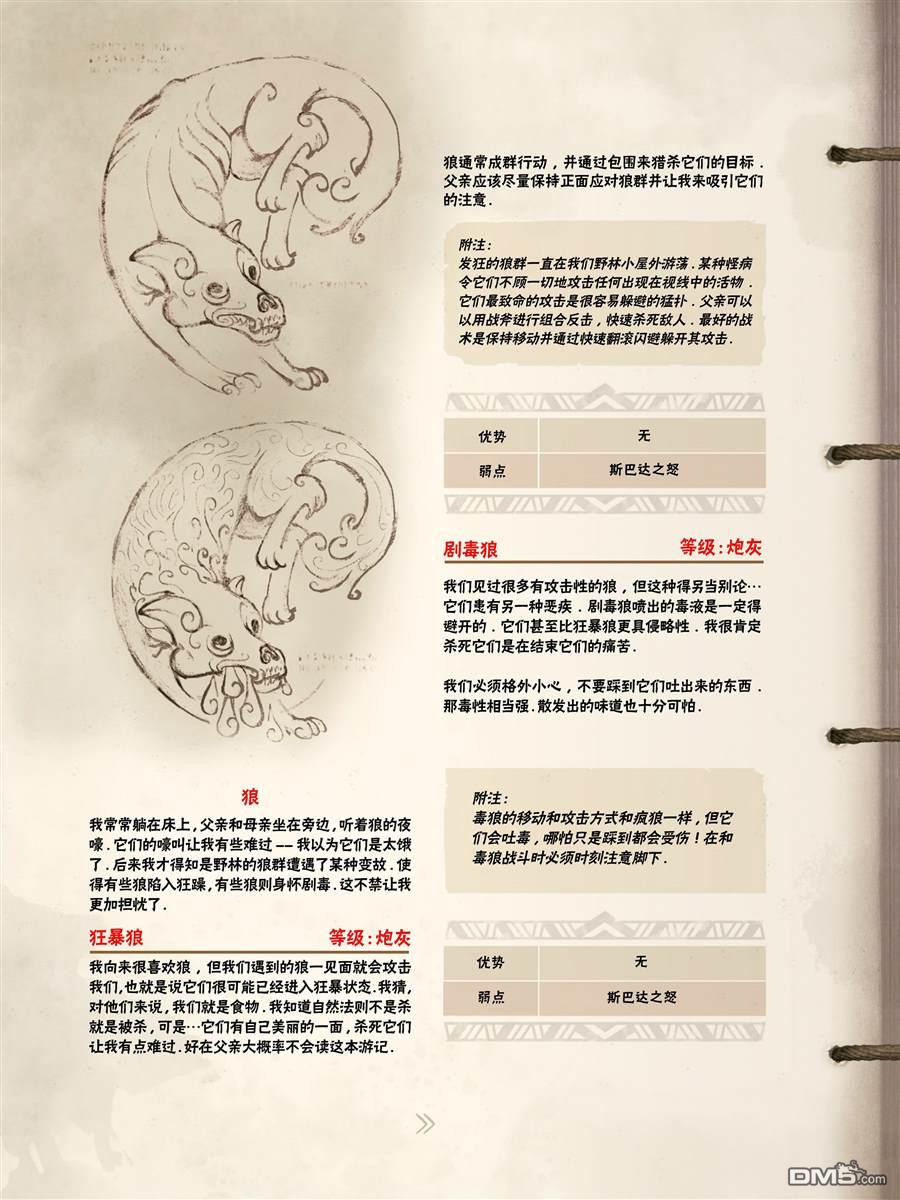 狼
我常常躺在床上,父亲和母亲坐在旁边,听着狼的夜
嚎.它们的嚎叫让我有些难过 -- 我以为它们是太饿
了.后来我才得知是野林的狼群遭遇了某种变故.使
得有些狼陷入狂躁,有些狼则身怀剧毒.这不禁让我
更加担忧了.
狂暴狼 等级:炮灰
我向来很喜欢狼,但我们遇到的狼一见面就会攻击
我们,也就是说它们很可能已经进入狂暴状态.我猜,
对他们来说,我们就是食物.我知道自然法则不是杀
就是被杀,可是…它们有自己美丽的一面,杀死它们
让我有点难过.好在父亲大概率不会读这本游记.
狼通常成群行动,并通过包围来猎杀它们的目标.
父亲应该尽量保持正面应对狼群并让我来吸引它们
的注意.
附注:
发狂的狼群一直在我们野林小屋外游荡.某种怪病
令它们不顾一切地攻击任何出现在视线中的活物.
它们最致命的攻击是很容易躲避的猛扑.父亲可以
以用战斧进行组合反击,快速杀死敌人.最好的战
术是保持移动并通过快速翻滚闪避躲开其攻击.
优势 无
弱点 斯巴达之怒
剧毒狼 等级:炮灰
我们见过很多有攻击性的狼,但这种得另当别论…
它们患有另一种恶疾.剧毒狼喷出的毒液是一定得
避开的.它们甚至比狂暴狼更具侵略性.我很肯定
杀死它们是在结束它们的痛苦.
我们必须格外小心,不要踩到它们吐出来的东西.
那毒性相当强.散发出的味道也十分可怕.
附注:
毒狼的移动和攻击方式和疯狼一样,但它
们会吐毒,哪怕只是踩到都会受伤!在和
毒狼战斗时必须时刻注意脚下.
优势 无
弱点 斯巴达之怒
DM5.com